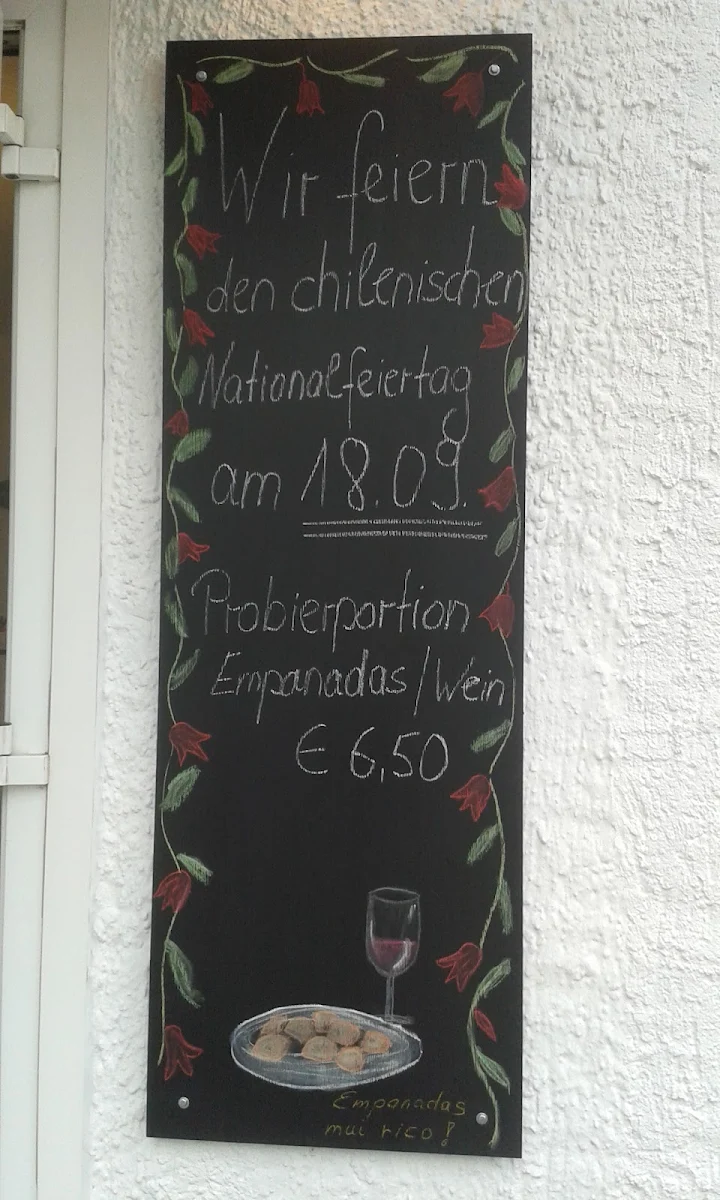 Wir feiern
den chilenischen
Nationalfeiertag
am 18.09.
Probierportion
Empanadas/Wein
€ 6,50
Empanadas
mui rico!